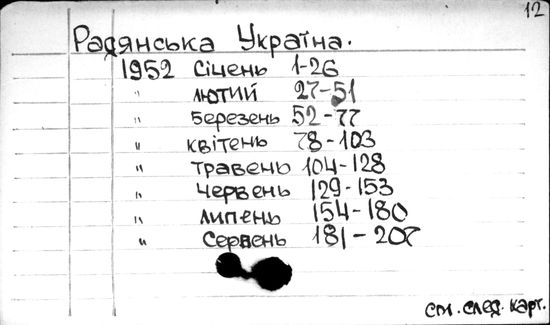 12
Радянська Україна.
1952 Січень 1-26
" лютий 27-51
" Березень 52-77
" квітень 78-103
" травень 104-128
" червень 129-153
" липень 154-180
" серпень 181-207
см. след. карт.